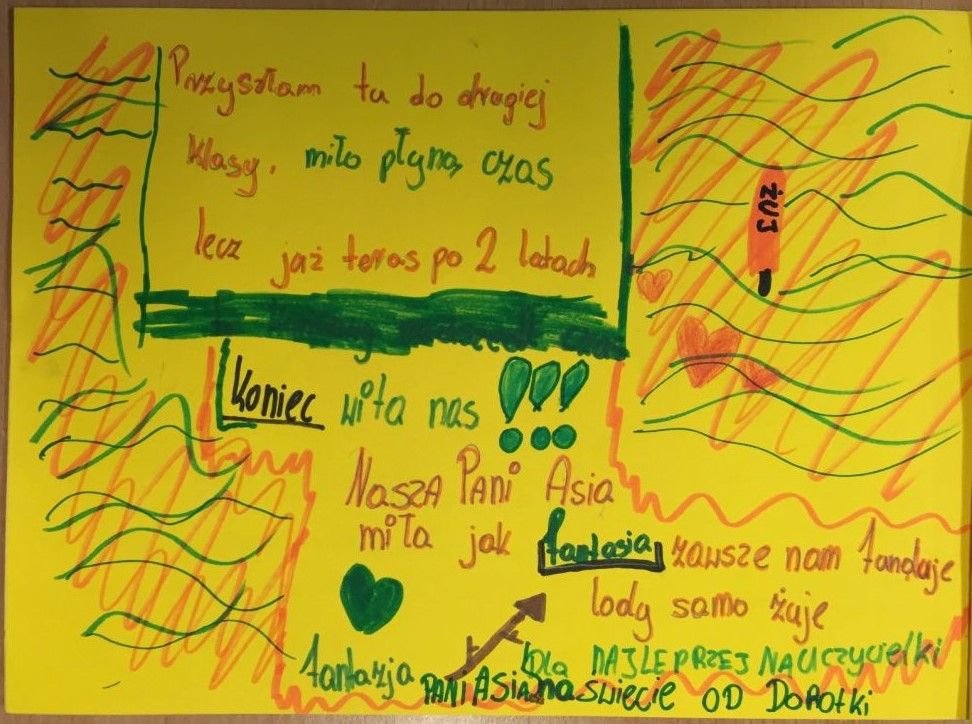 Przyszłam tu do drugiej
klasy. miło płyną czas
lecz jaż teras po 2 latach
Koniec wita nas !!!
NaszA PANi Asia
miła jak fantasia zawsze nam fanduje
lody samo żuje
ŻUJ
fantazja
Dla NAJLEPRZEJ NAUCZYCIELKI
PANI ASIA na świecie OD DOROTKI